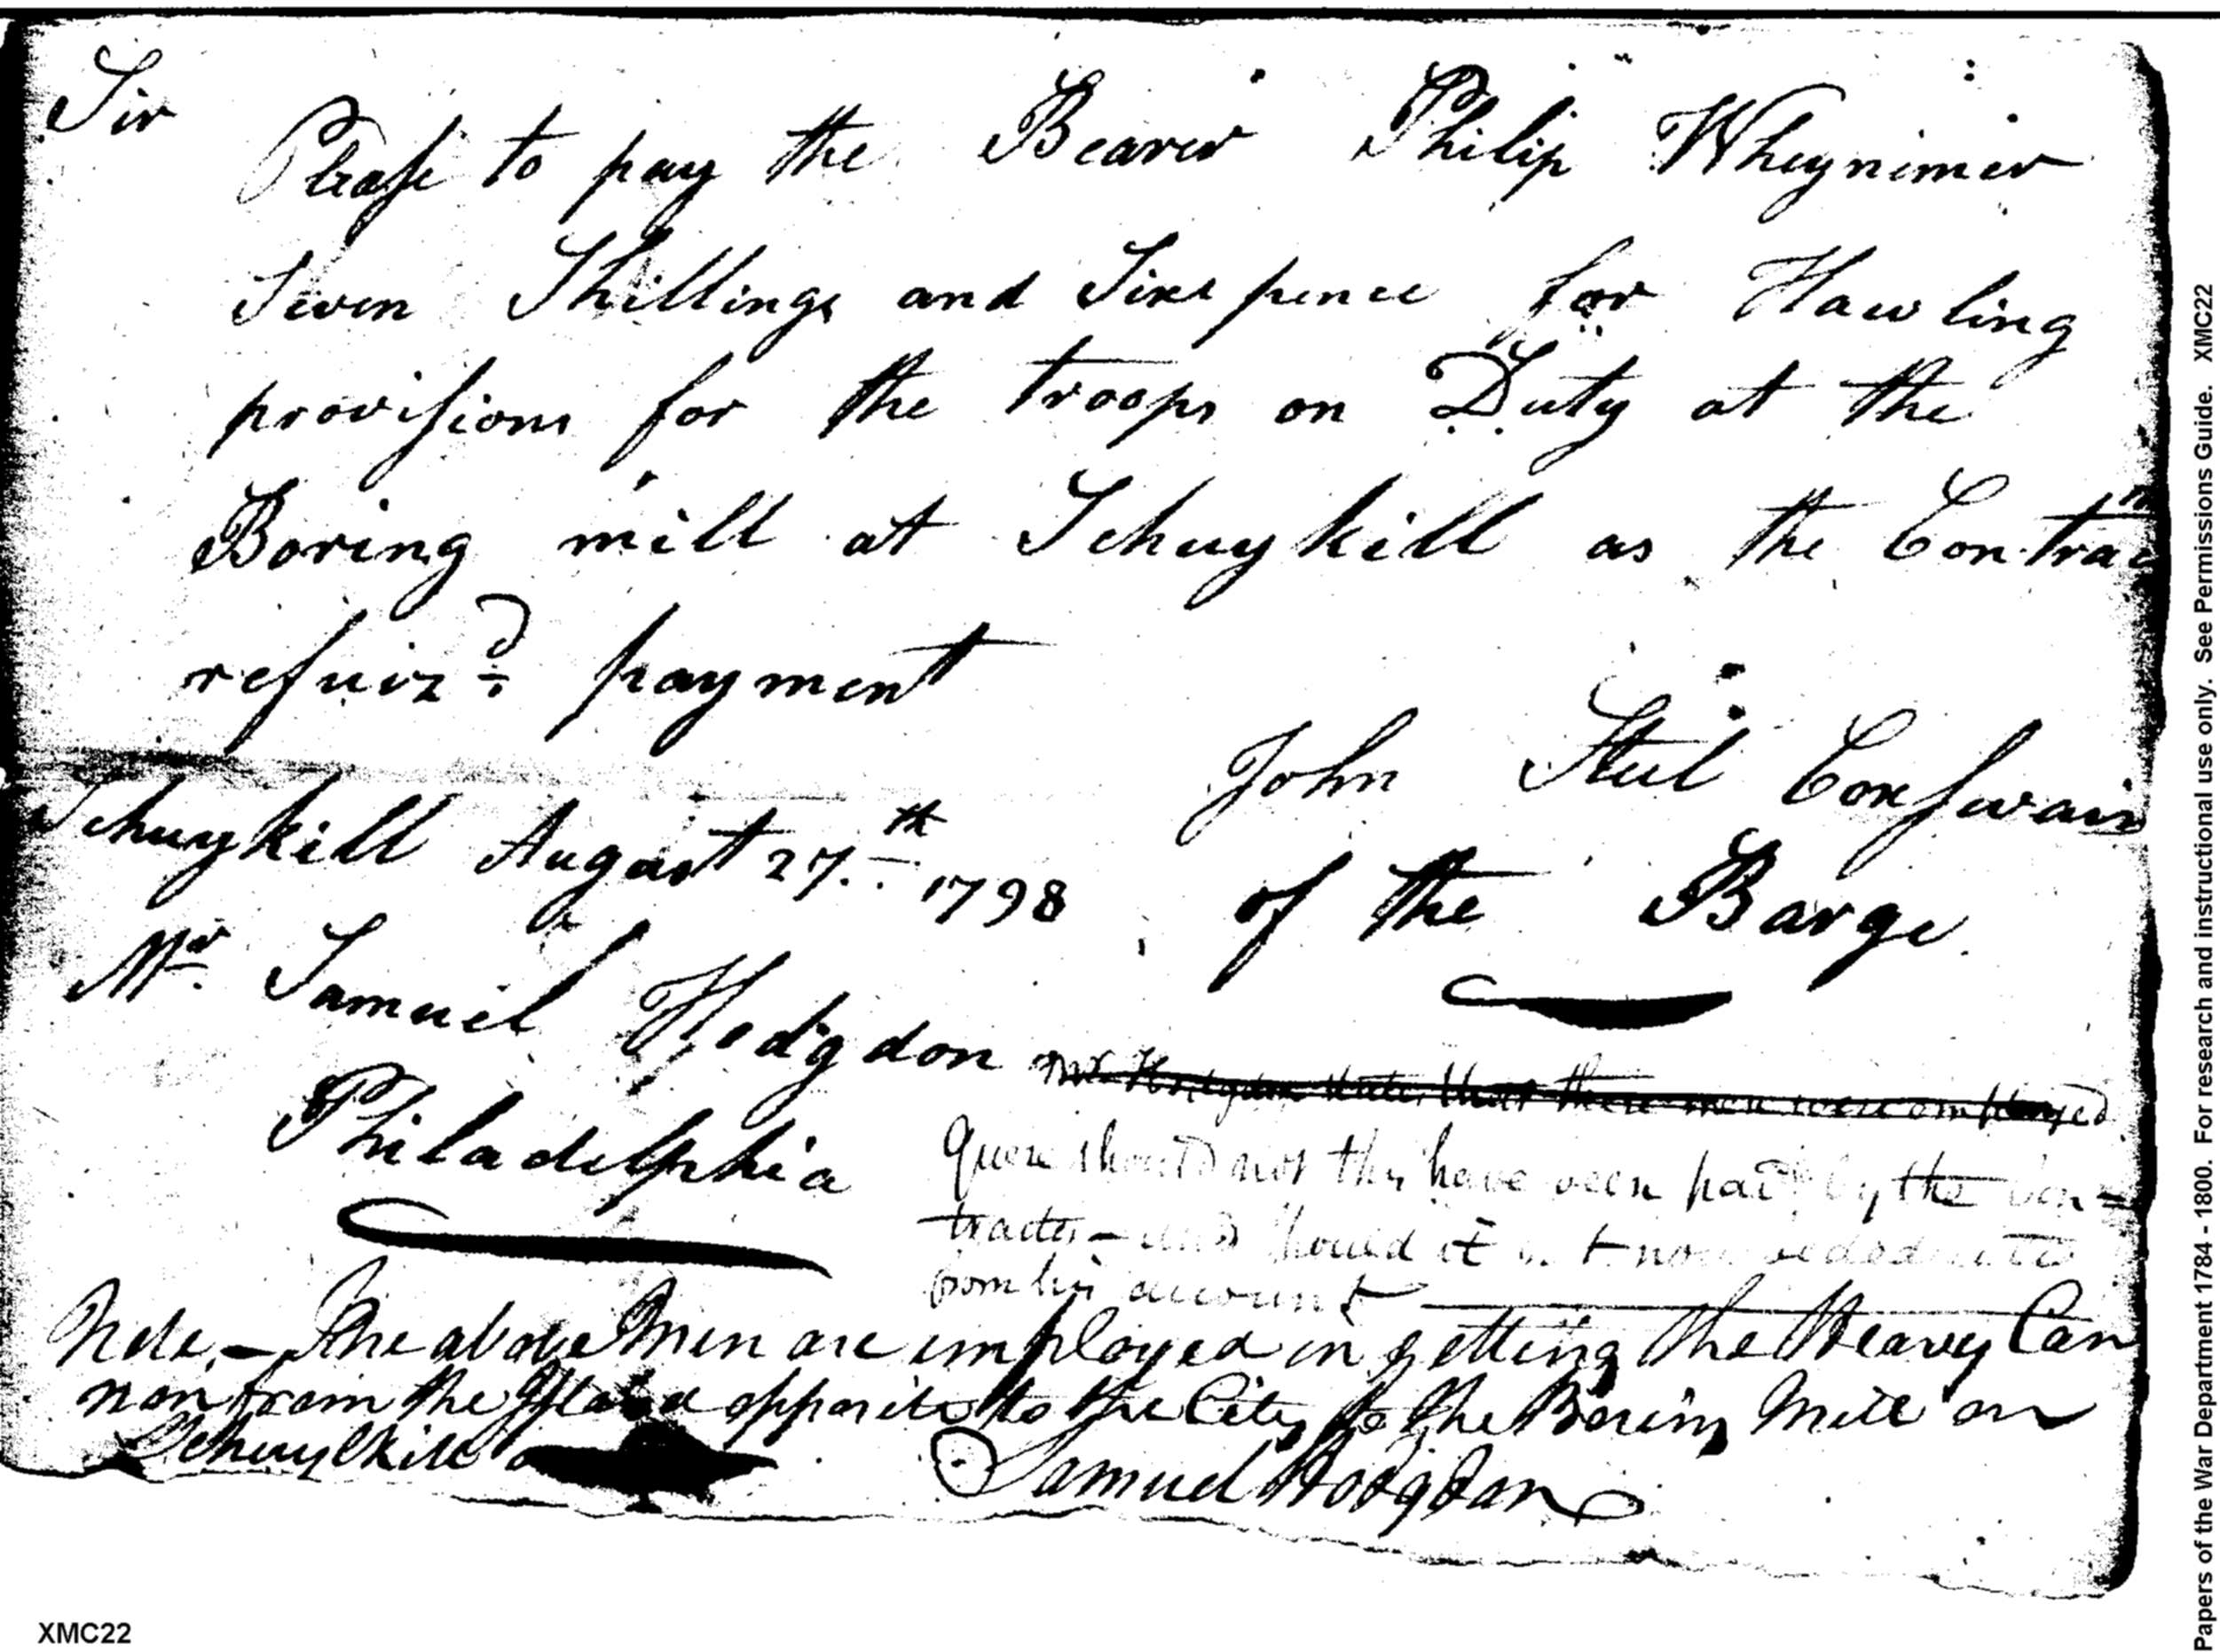 Sir
Please to pay the Bearer Philip Wheynimer
Seven Shillings and Sixepence for Hawling
provisions for the troops on Duty at the
Boring mill at Schuykill as the Contrac
refuiz'd payment
John Steel Coxswain
of the Barge
Schuykill August 27th 1798
Mr Samuel Hodgdon
Philadelphia
Mr Hodgdon states that these men were employed
Quere should not this have been paid by the Con-
tractor - and should it not now be deducted
from his account
Note, - The above Men are employed in getting the Heavey Can
non from the Island opposite to the City to the Boring Mill on
Schuylkill
Samuel Hodgdon
XMC22
Papers of the War Department 1784 - 1800. For research and instructional use only. See Permissions Guide. XMC22